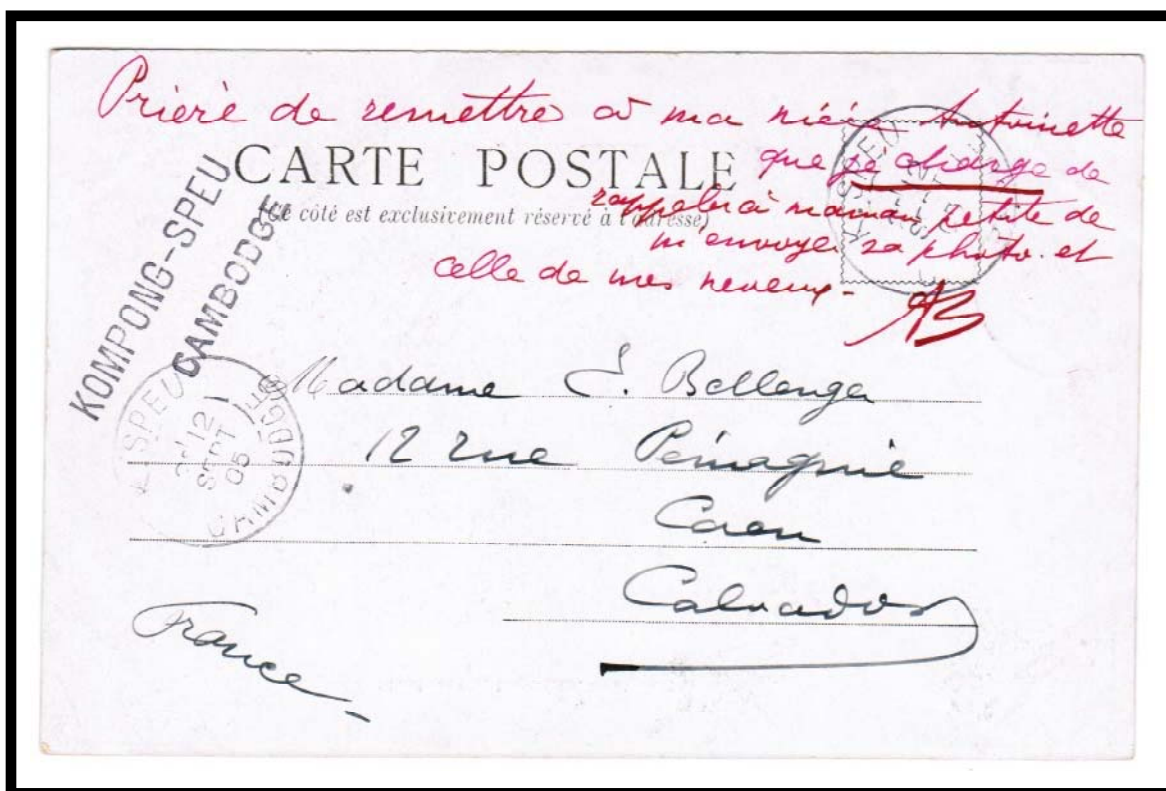 Prière de remettre à ma nièce Antoinette
que je charge de
rappeler à maman petite de
m'envoyer sa photo et
celle de mes neveux -
AB
CARTE POSTALE
(Ce côté est exclusivement réservé à l'adresse)
KOMPONG-SPEU
CAMBODGE
K. SPEU
12
SEPT
05
CAMBODGE
Madame E. Bellenger
12 rue Pémagnie
Caen
Calvados
France -